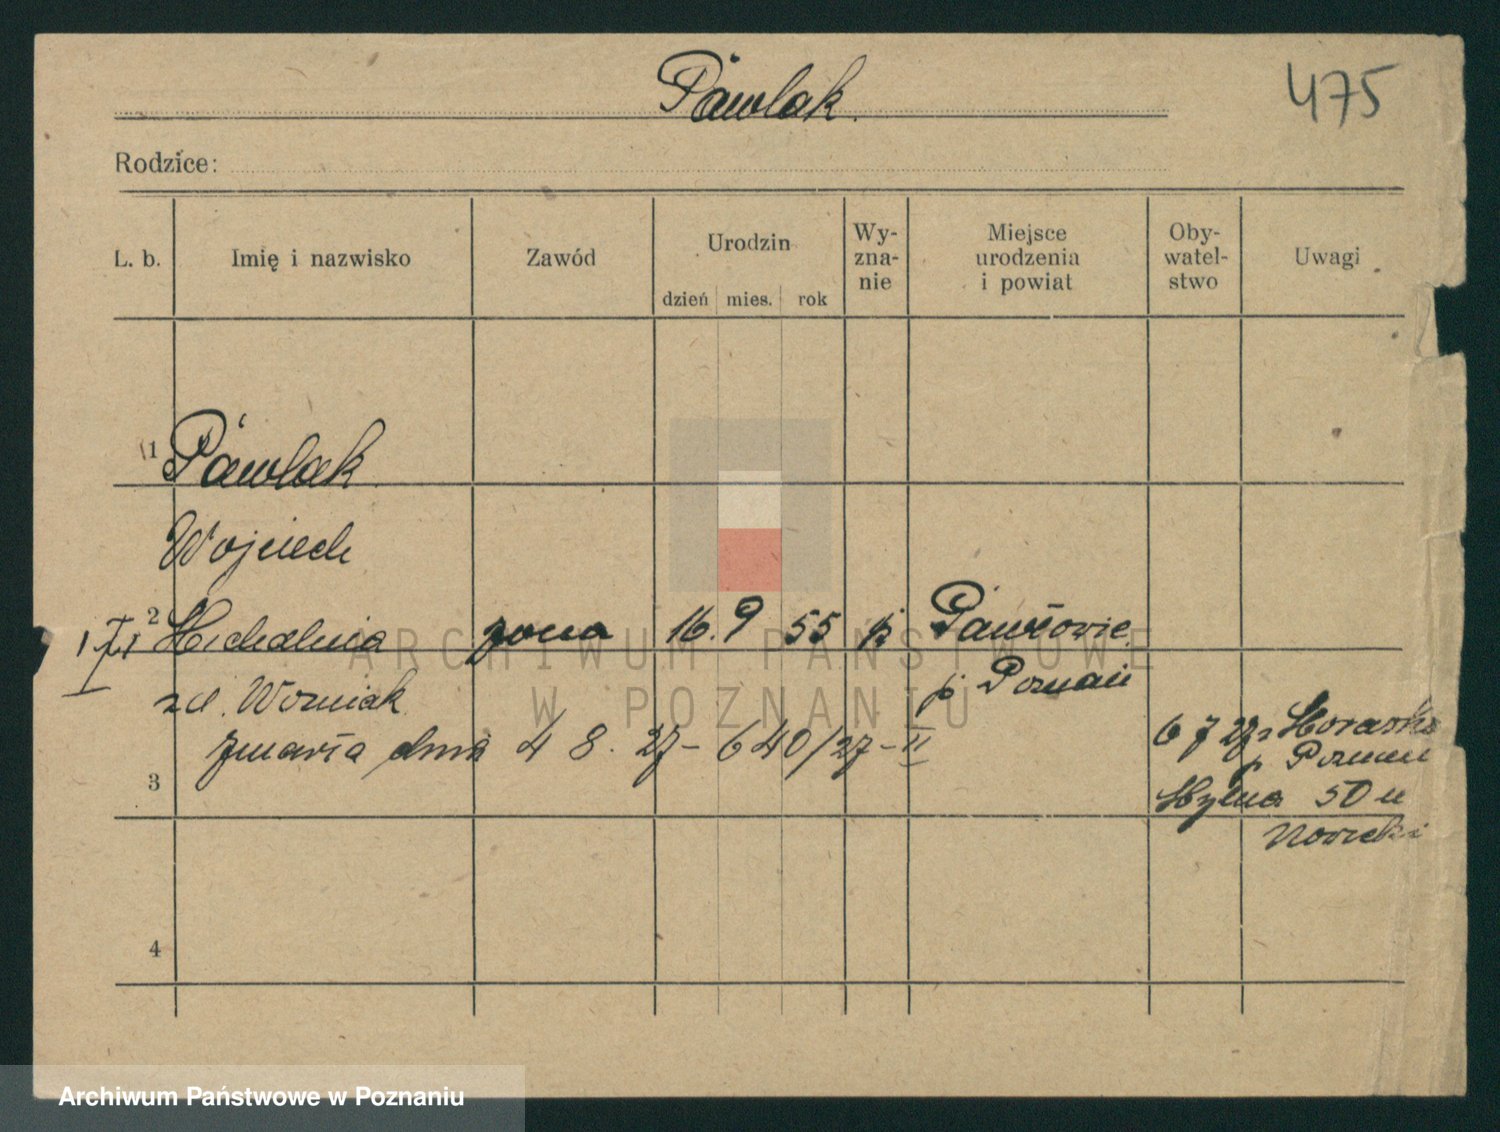 Pawlak.
475
Rodzice:
L. b. Imię i nazwisko Zawód Urodzin dzień mies. rok Wy-zna-nie Miejsce urodzenia i powiat Oby-watel-stwo Uwagi
1 Pawlak.
Wojciech
2 Michalina żona 16. 9 55 k Pawłowic
zd. Wozniak p Poznań
zmarła dnia 4 8. 27 – 640/27 – II
6 7 27 z Morasko
p Poznań
3
Mylna 50 u
Nowicki
4
ARCHIWUM PAŃSTWOWE
W POZNANIU
Archiwum Państwowe w Poznaniu